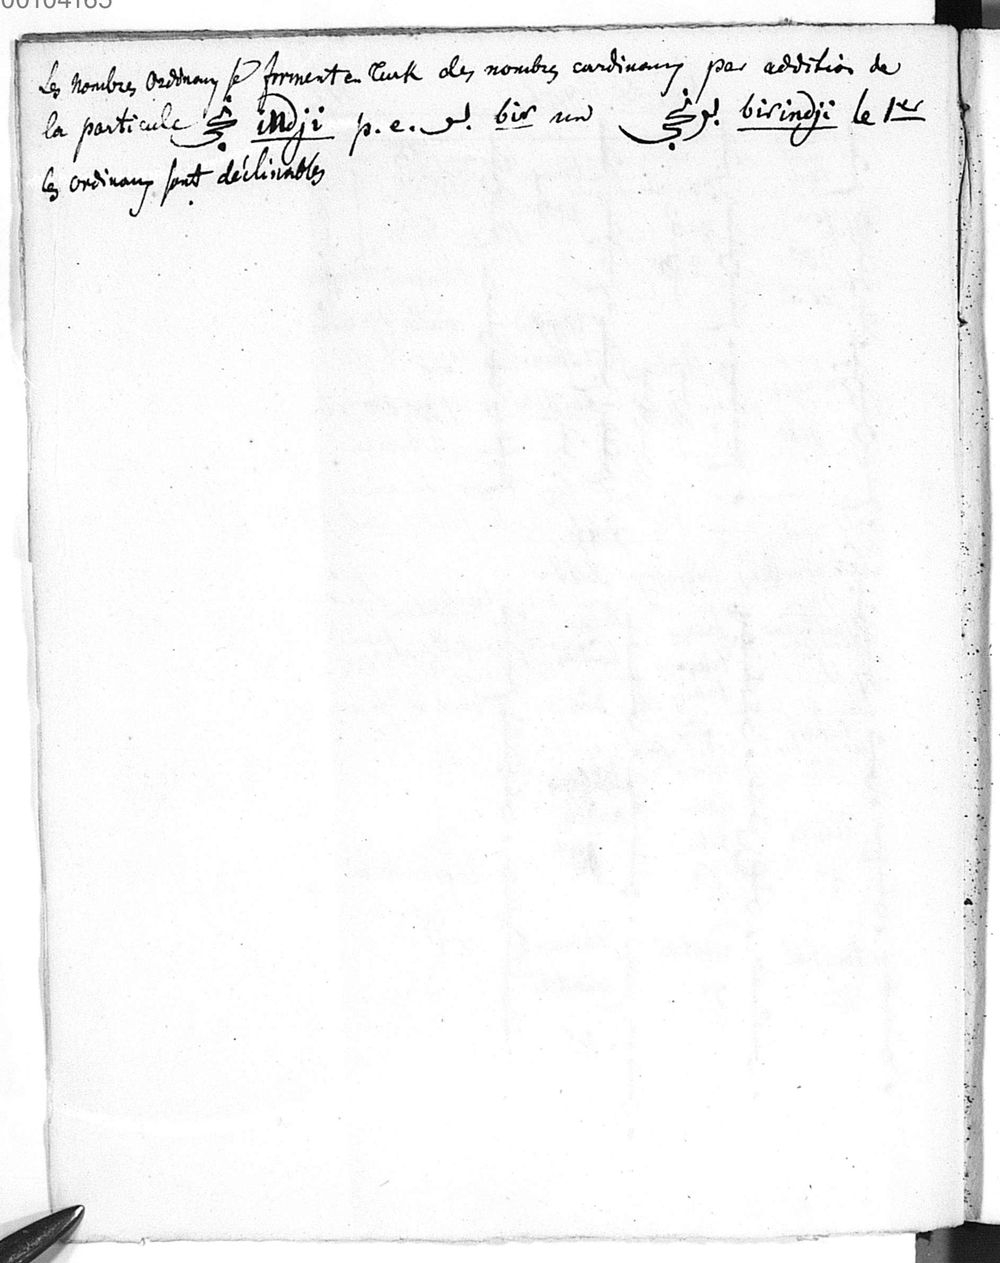 00104165
Les nombres ordinaux se forment en Turk des nombres cardinaux par addition de
la particule نجى indji p. e. بر bir un برنجى birindji le 1er
les ordinaux sont déclinables